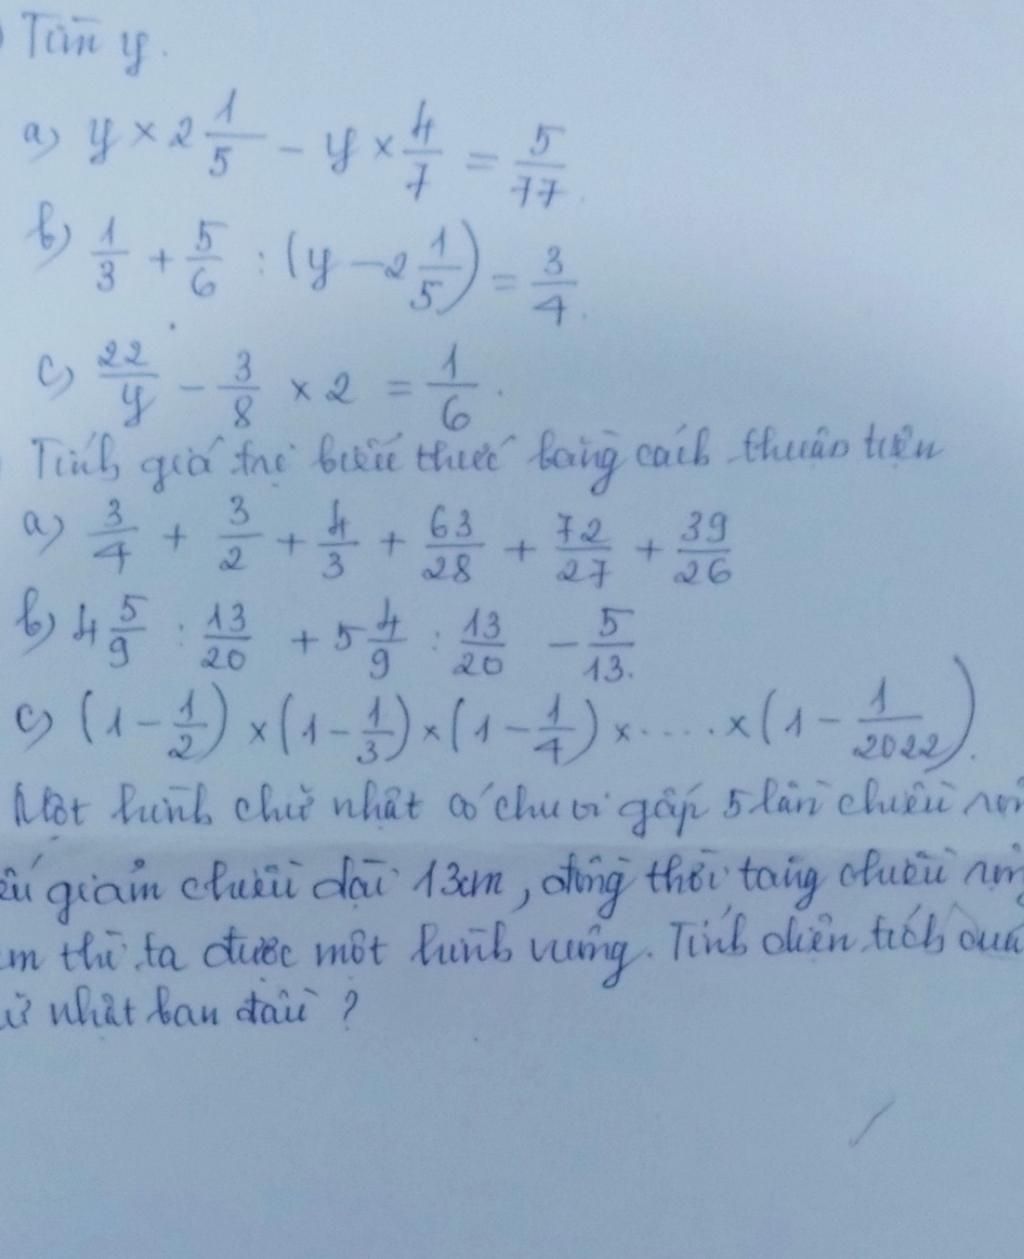 Tìm y.
a) y × 2 1/5 - y × 4/7 = 5/77.
b) 1/3 + 5/6 : (y - 2 1/5) = 3/4.
c) 22/y - 3/8 × 2 = 1/6.
Tính giá trị biểu thức bằng cách thuận tiện
a) 3/4 + 3/2 + 4/3 + 63/28 + 72/27 + 39/26
b) 4 5/9 : 13/20 + 5 4/9 : 13/20 - 5/13.
c) (1 - 1/2) × (1 - 1/3) × (1 - 1/4) × ..... × (1 - 1/2022).
Một hình chữ nhật có chu vi gấp 5 lần chiều
giảm chiều dài 13cm, đồng thời tăng chiều
m thì ta được một hình vuông. Tính diện tích
nhật ban đầu ?